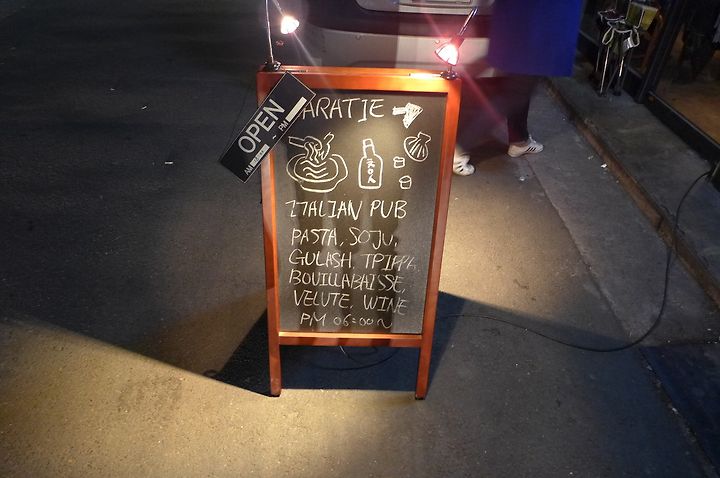 OPEN
AM ~ PM
ARATJE
ITALIAN PUB
PASTA, SOJU,
GULASH, TPIPPA,
BOUILLABAISSE,
VELUTE, WINE
PM 06:00~